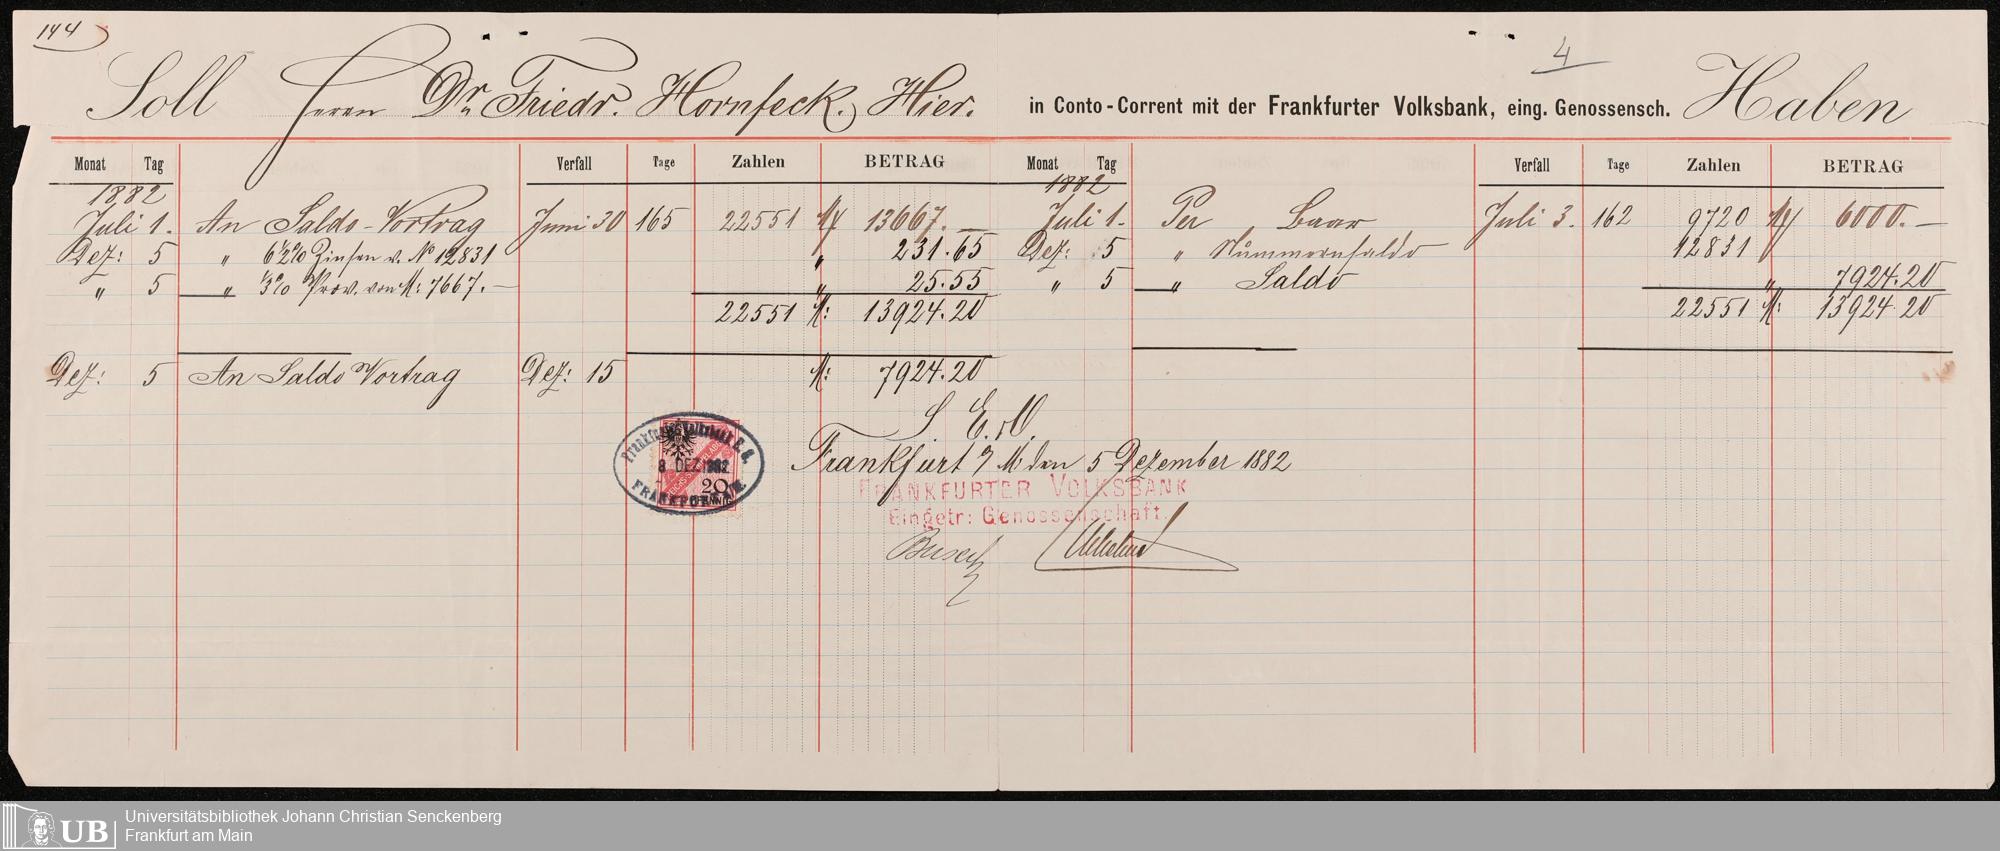 144
4
Soll Herrn Dr. Friedr. Hornfeck. Hier. in Conto-Corrent mit der Frankfurter Volksbank, eing. Genossensch. Haben
Monat Tag Verfall Tage Zahlen BETRAG Monat Tag Verfall Tage Zahlen BETRAG
1882 1882
Juli 1. An Saldo-Vortrag Juni 30 165 22551 M 13667.— Juli 1. Per Baar Juli 3. 162 9720 M 6000.—
Dez: 5 " 6½% Zinsen v. No 12831 " 231.65 Dez: 5 " Nummernsaldo 12831
" 5 " ⅓% Prov. von M: 7667.— " 25.55 " 5 " Saldo " 7924.20
22551 M: 13924.20 22551 M: 13924.20
Dez: 5 An Saldo Vortrag Dez: 15 M: 7924.20
S. E. & O.
Frankfurt a/M: den 5 Dezember 1882
FRANKFURTER VOLKSBANK
Eingetr: Genossenschaft.
Busch
Frankfurter Volksbank E. G.
8 DEZ 1882
20
PFENNIG
FRANKFURT A/M.
UB
Universitätsbibliothek Johann Christian Senckenberg
Frankfurt am Main